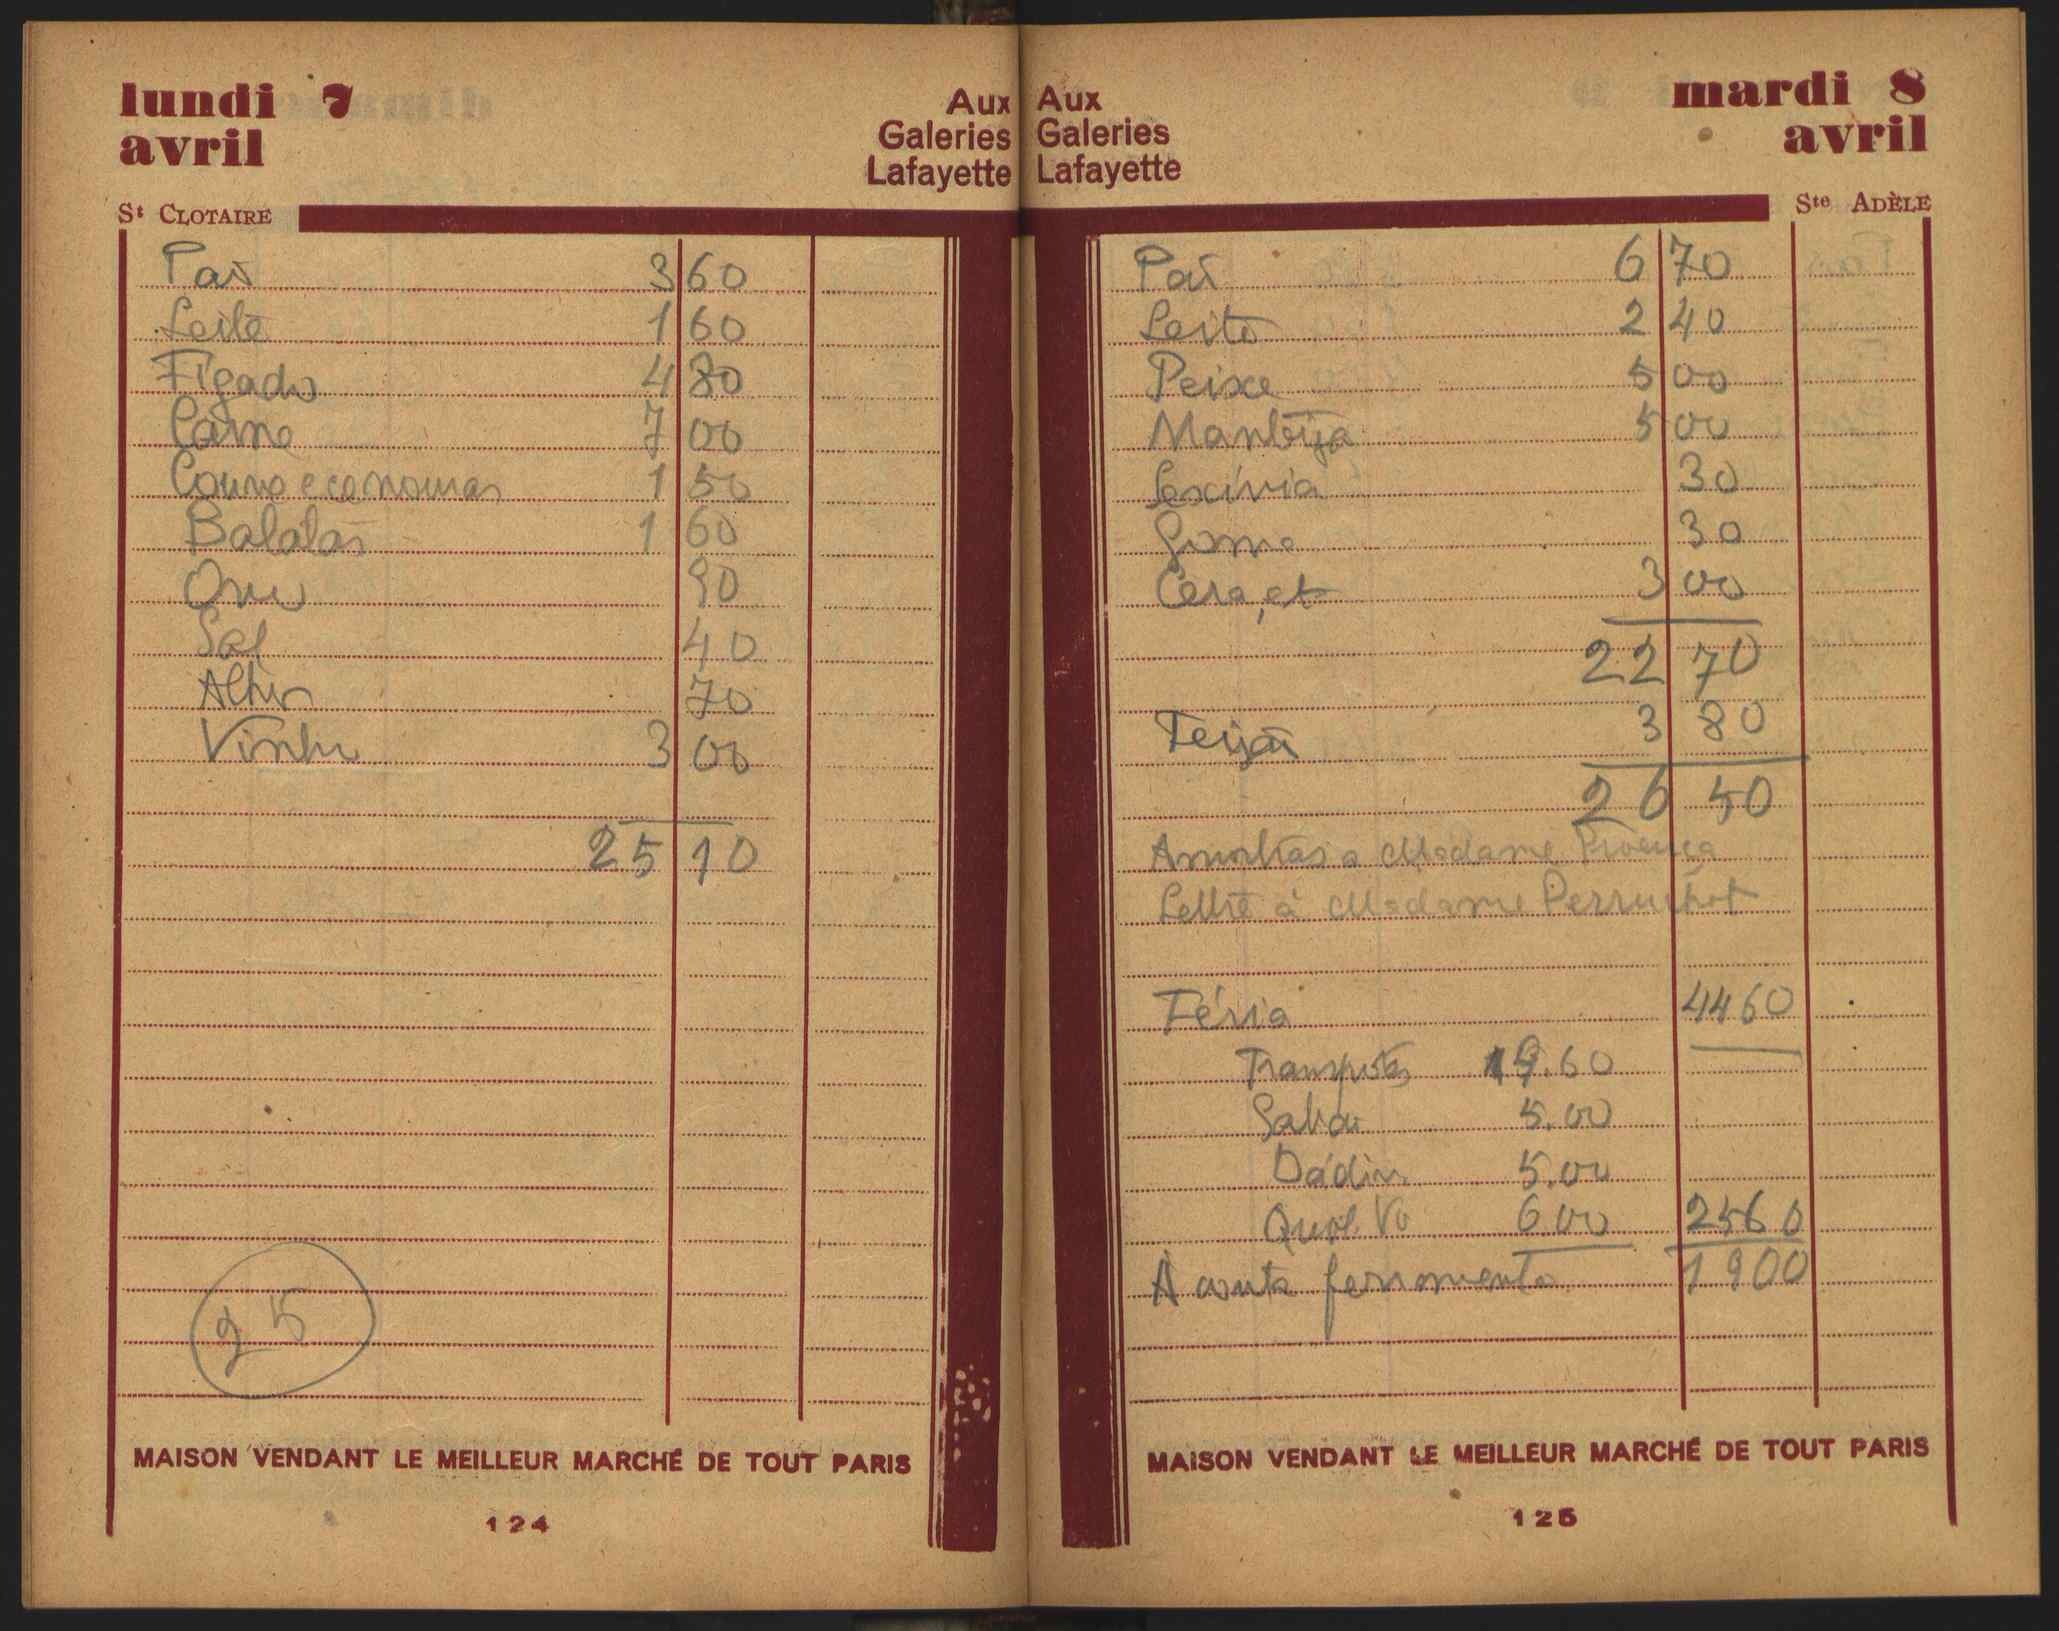 lundi 7
avril
Aux
Galeries
Lafayette
St CLOTAIRE
Pão 3 60
Leite 1 60
Fígado 4 80
Carne 7 00
Couve e cenouras 1 50
Batatas 1 60
Ovo 90
Sal 40
Alhos 70
Vinho 3 00
25 10
25
MAISON VENDANT LE MEILLEUR MARCHÉ DE TOUT PARIS
124
Aux
Galeries
Lafayette
mardi 8
avril
Ste ADÈLE
Pão 6 70
Leite 2 40
Peixe 5 00
Manteiga 5 00
Lexívia 30
Goma 30
Cera, etc 3 00
22 70
Feijão 3 80
26 50
Amostras a Madame Proença
Lettre à Madame Perruchot
Féria 4460
Transportes 19.60
Sabão 5.00
Dádiva 5.00
6 00 2560
À conta ferramenta 1900
MAISON VENDANT LE MEILLEUR MARCHÉ DE TOUT PARIS
125